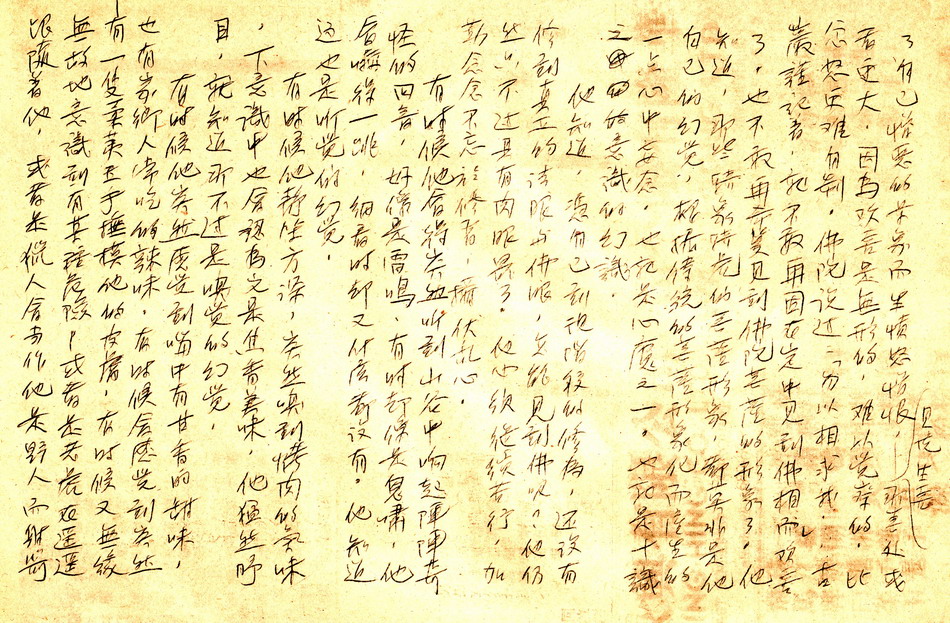 了自己憎惡的景象而生憤怒憎恨，
害更大，因為歡喜是無形的，難以覺察的，比
忿怒更难自制，佛陀说过「勿以相求我」，古
嚴謹記著，就不敢再因在定中見到佛相而欢喜
了。也不敢再希冀見到佛陀菩薩的形象了。他
知道，那些諸象諸光的菩薩形象，都实非是他
自己的幻觉，根據傳統的菩薩形象化而產生的
一点心中妄念。也就是心魔之一。也就是十識
之的意識的幻識。
他知道，憑自己到現階段的修為，还没有
修到真正的法眼与佛眼，怎能見到佛呢？他仍
然只不过具有肉眼罢了。他必须继续苦行，加
勤念念不忘於修者，攝伏乱心。
有時候他會偶然听到山谷中响起陣陣奇
怪的回音，好像是雷鳴，有時却像是鬼嘯，他
會嚇得一跳，細看时却又什麼都沒有。他知道
这也是听觉的幻觉。
有时候他静坐方深，突然嗅到烤肉的氣味
，下意識中也會認為它是焦香美味，他猛然睜
目，就知道那不过是嗅觉的幻觉。
有时候他突然感觉到嘴中有甘香的甜味，
也有家鄉人常吃的辣味。有时候会感觉到突然
有一隻柔荑玉手撫摸他的皮膚，有时候又無缘
無故地意識到有某種危險，或者是老虎在遥遥
跟隨著他，或者是獵人會当作他是野人而射箭